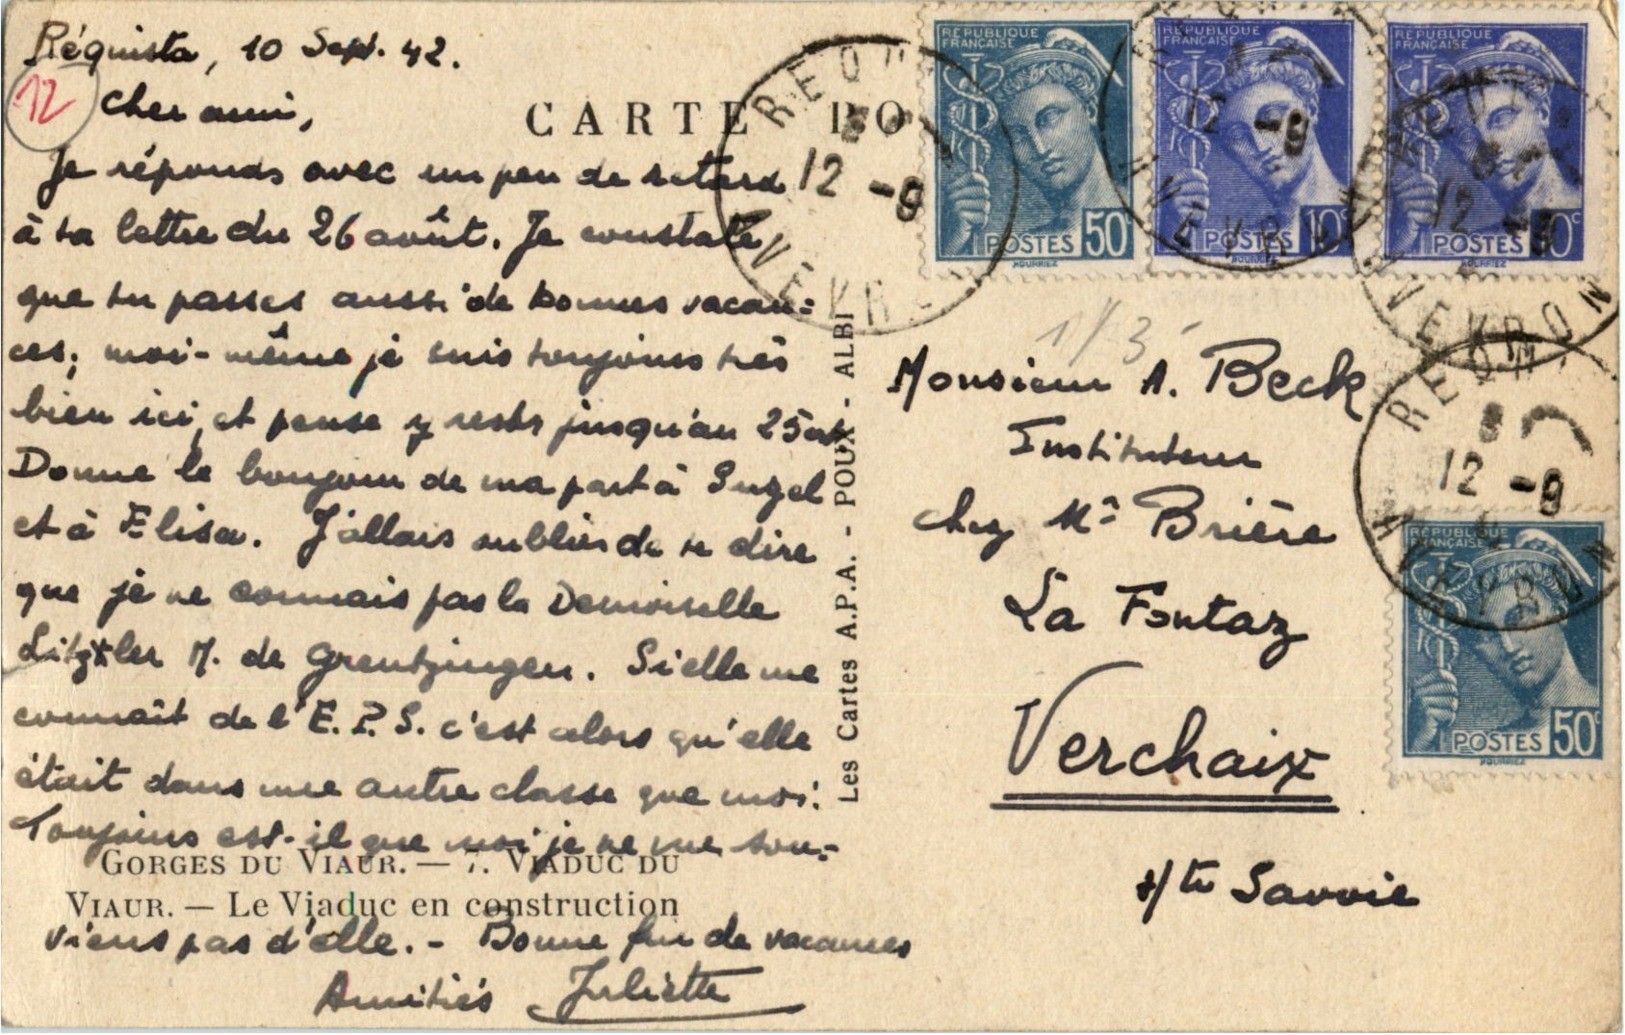 Réquista, 10 Sept. 42.
12
Cher ami,
Je réponds avec un peu de retard
à ta lettre du 26 août. Je constate
que tu passes aussi de bonnes vacan=
ces; moi-même je suis toujours très
bien ici, et pense y rester jusqu'au 25
Donne le bonjour de ma part à Suzel
et à Elisa. J'allais oublier de te dire
que je ne connais pas la Demoiselle
Litzler M. de Grentzingen. Si elle me
connaît de l'E.P.S. c'est alors qu'elle
était dans une autre classe que moi.
Toujours est-il que moi je ne me sou-
GORGES DU VIAUR. — 7. VIADUC DU
VIAUR. — Le Viaduc en construction
viens pas d'elle. - Bonne fin de vacances
Amitiés Juliette
CARTE PO
Les Cartes A.P.A. - POUX - ALBI
REQU
12 -9
AVEYRON
RÉPUBLIQUE
FRANÇAISE
POSTES 50c
HOURRIEZ
RÉPUBLIQUE
FRANÇAISE
12 -9
AVEYRON
POSTES 10c
HOURRIEZ
RÉPUBLIQUE
FRANÇAISE
12 -9
AVEYRON
POSTES 10c
HOURRIEZ
1/3
Monsieur A. Beck
Instituteur
chez Mr Brière
La Fontaz
Verchaix
Hte Savoie
REQU
12 -9
AVEYRON
RÉPUBLIQUE
FRANÇAISE
POSTES 50c
HOURRIEZ